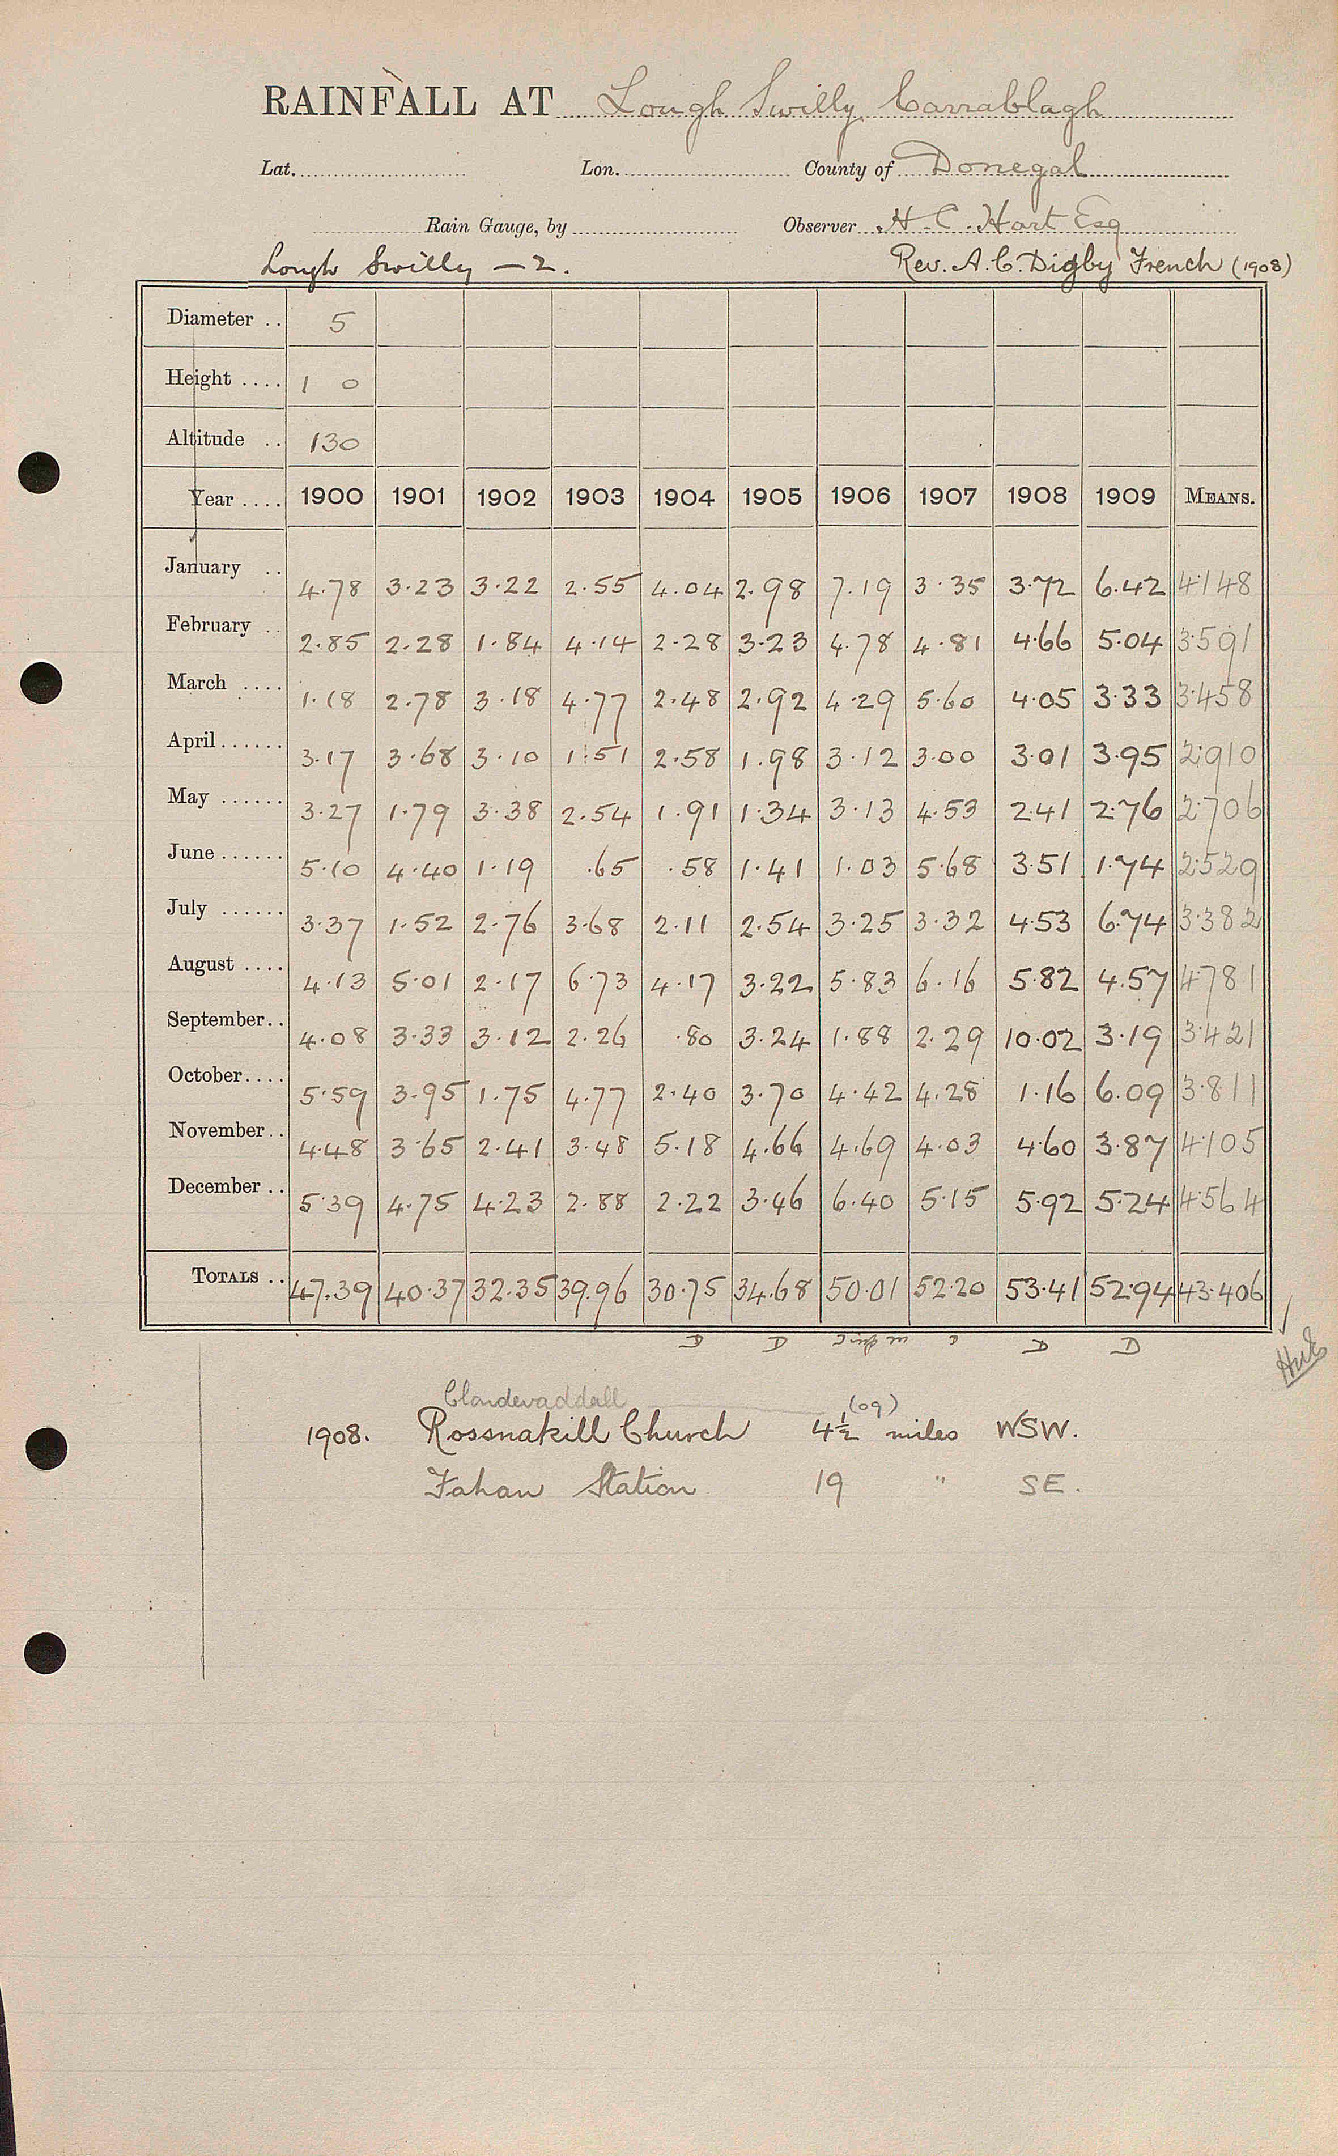 RAINFALL AT Lough Swilly, Carrablagh
Lat. Lon. County of Donegal
Rain Gauge, by Observer H. C. Hart Esq
Lough Swilly — 2. Rev. A. C. Digby French (1908)
Diameter .. 5
Height .... 1 0
Altitude .. 130
Year .... 1900 1901 1902 1903 1904 1905 1906 1907 1908 1909 MEANS.
January .. 4.78 3.23 3.22 2.55 4.04 2.98 7.19 3.35 3.72 6.42 4.148
February .. 2.85 2.28 1.84 4.14 2.28 3.23 4.78 4.81 4.66 5.04 3.591
March .... 1.18 2.78 3.18 4.77 2.48 2.92 4.29 5.60 4.05 3.33 3.458
April ...... 3.17 3.68 3.10 1.51 2.58 1.98 3.12 3.00 3.01 3.95 2.910
May ...... 3.27 1.79 3.38 2.54 1.91 1.34 3.13 4.53 2.41 2.76 2.706
June ...... 5.10 4.40 1.19 .65 .58 1.41 1.03 5.68 3.51 1.74 2.529
July ...... 3.37 1.52 2.76 3.68 2.11 2.54 3.25 3.32 4.53 6.74 3.382
August .... 4.13 5.01 2.17 6.73 4.17 3.22 5.83 6.16 5.82 4.57 4.781
September.. 4.08 3.33 3.12 2.26 .80 3.24 1.88 2.29 10.02 3.19 3.421
October.... 5.59 3.95 1.75 4.77 2.40 3.70 4.42 4.28 1.16 6.09 3.811
November.. 4.48 3.65 2.41 3.48 5.18 4.66 4.69 4.03 4.60 3.87 4.105
December .. 5.39 4.75 4.23 2.88 2.22 3.46 6.40 5.15 5.92 5.24 4.564
TOTALS .. 47.39 40.37 32.35 39.96 30.75 34.68 50.01 52.20 53.41 52.94 43.406
D D D D
Clondevaddall (09)
1908. Rossnakill Church 4½ miles WSW.
Fahan Station 19 " SE.